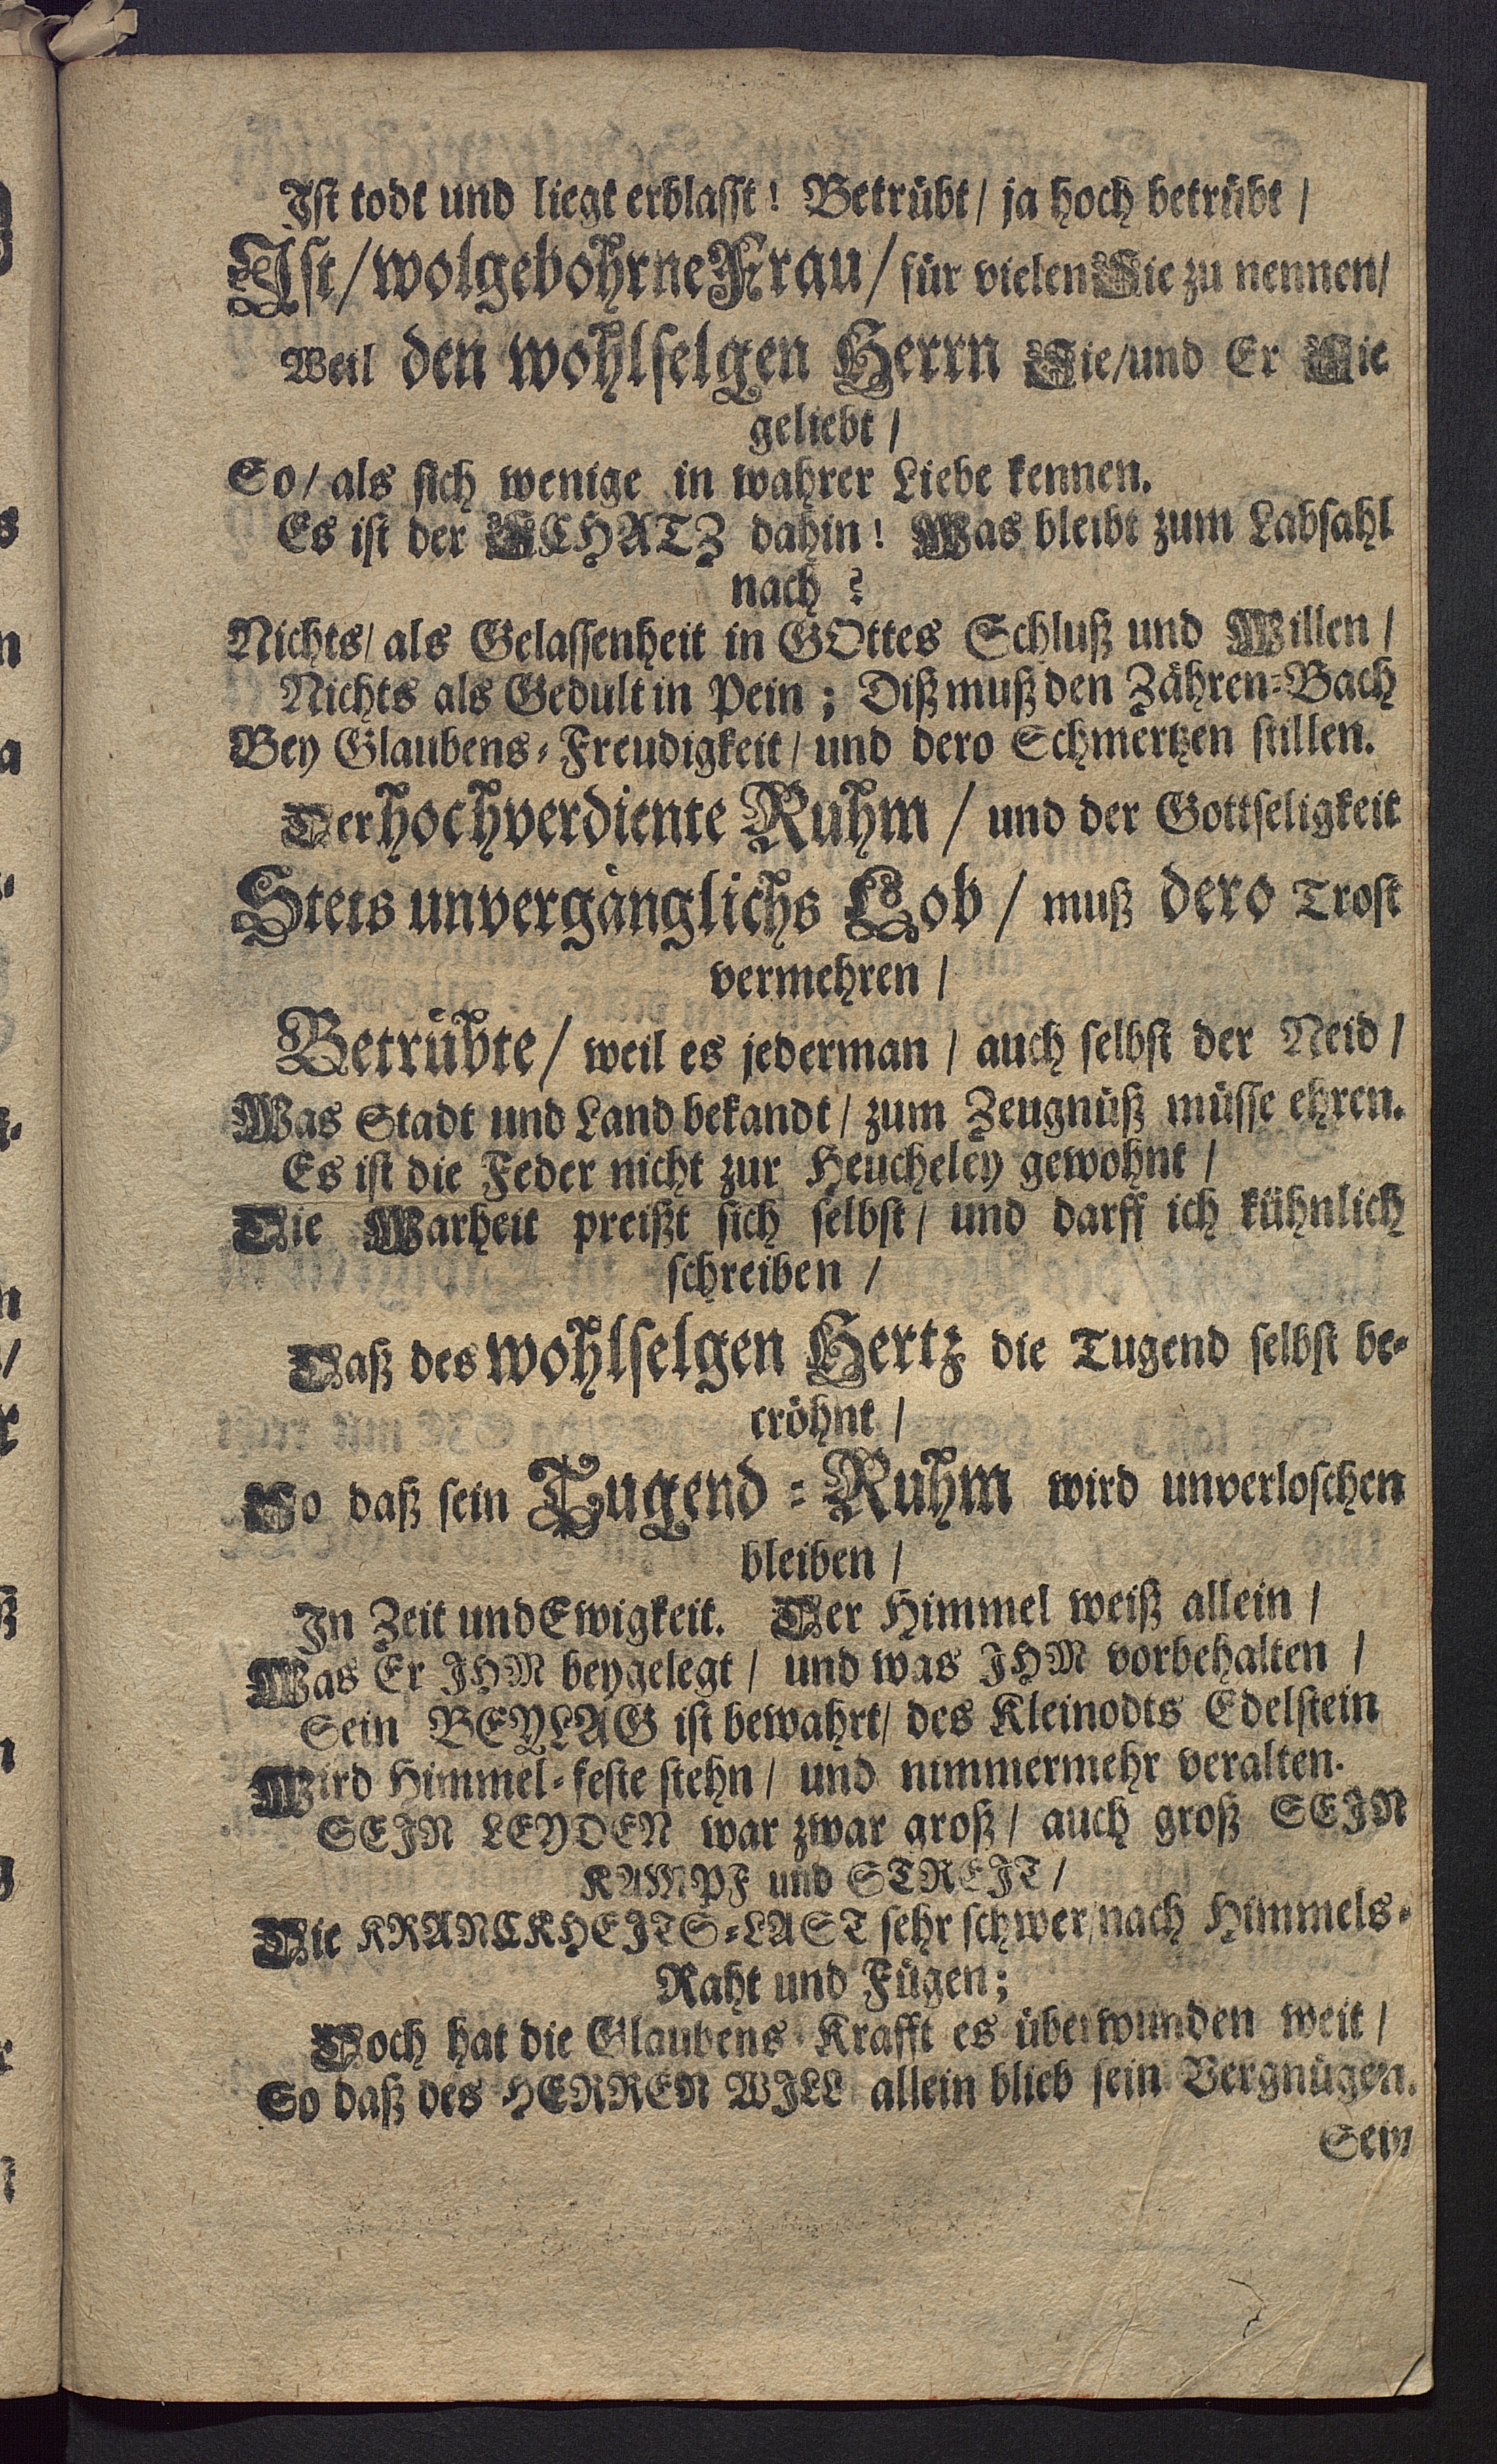 Ist todt und liegt erblasst! Betrübt / ja hoch betrübt /
Ist / wolgebohrne Frau / für vielen Sie zu nennen /
Weil den wohlselgen Herrn Sie / und Er Sie
geliebt /
So / als sich wenige in wahrer Liebe kennen.
Es ist der SCHATZ dahin! Was bleibt zum Labsahl
nach?
Nichts / als Gelassenheit in GOttes Schluß und Willen /
Nichts als Gedult in Pein; Diß muß den Zähren-Bach
Bey Glaubens-Freudigkeit / und dero Schmertzen stillen.
Der hochverdiente Ruhm / und der Gottseligkeit
Stets unvergänglichs Lob / muß dero Trost
vermehren /
Betrübte / weil es jederman / auch selbst der Neid /
Was Stadt und Land bekandt / zum Zeugnüß müsse ehren.
Es ist die Feder nicht zur Heucheley gewohnt /
Die Warheit preißt sich selbst / und darff ich kühnlich
schreiben /
Daß des wohlselgen Hertz die Tugend selbst be-
cröhnt /
So daß sein Tugend-Ruhm wird unverloschen
bleiben /
In Zeit und Ewigkeit. Der Himmel weiß allein /
Was Er IHM beygelegt / und was IHM vorbehalten /
Sein BEYLAG ist bewahrt / des Kleinodts Edelstein
Wird Himmel-feste stehn / und nimmermehr veralten.
SEIN LEYDEN war zwar groß / auch groß SEIN
KAMPF und STREIT /
Die KRANCKHEITS-LAST sehr schwer / nach Himmels-
Raht und Fügen;
Doch hat die Glaubens-Krafft es überwunden weit /
So daß des HERREN WILL allein blieb sein Vergnügen.
Sein